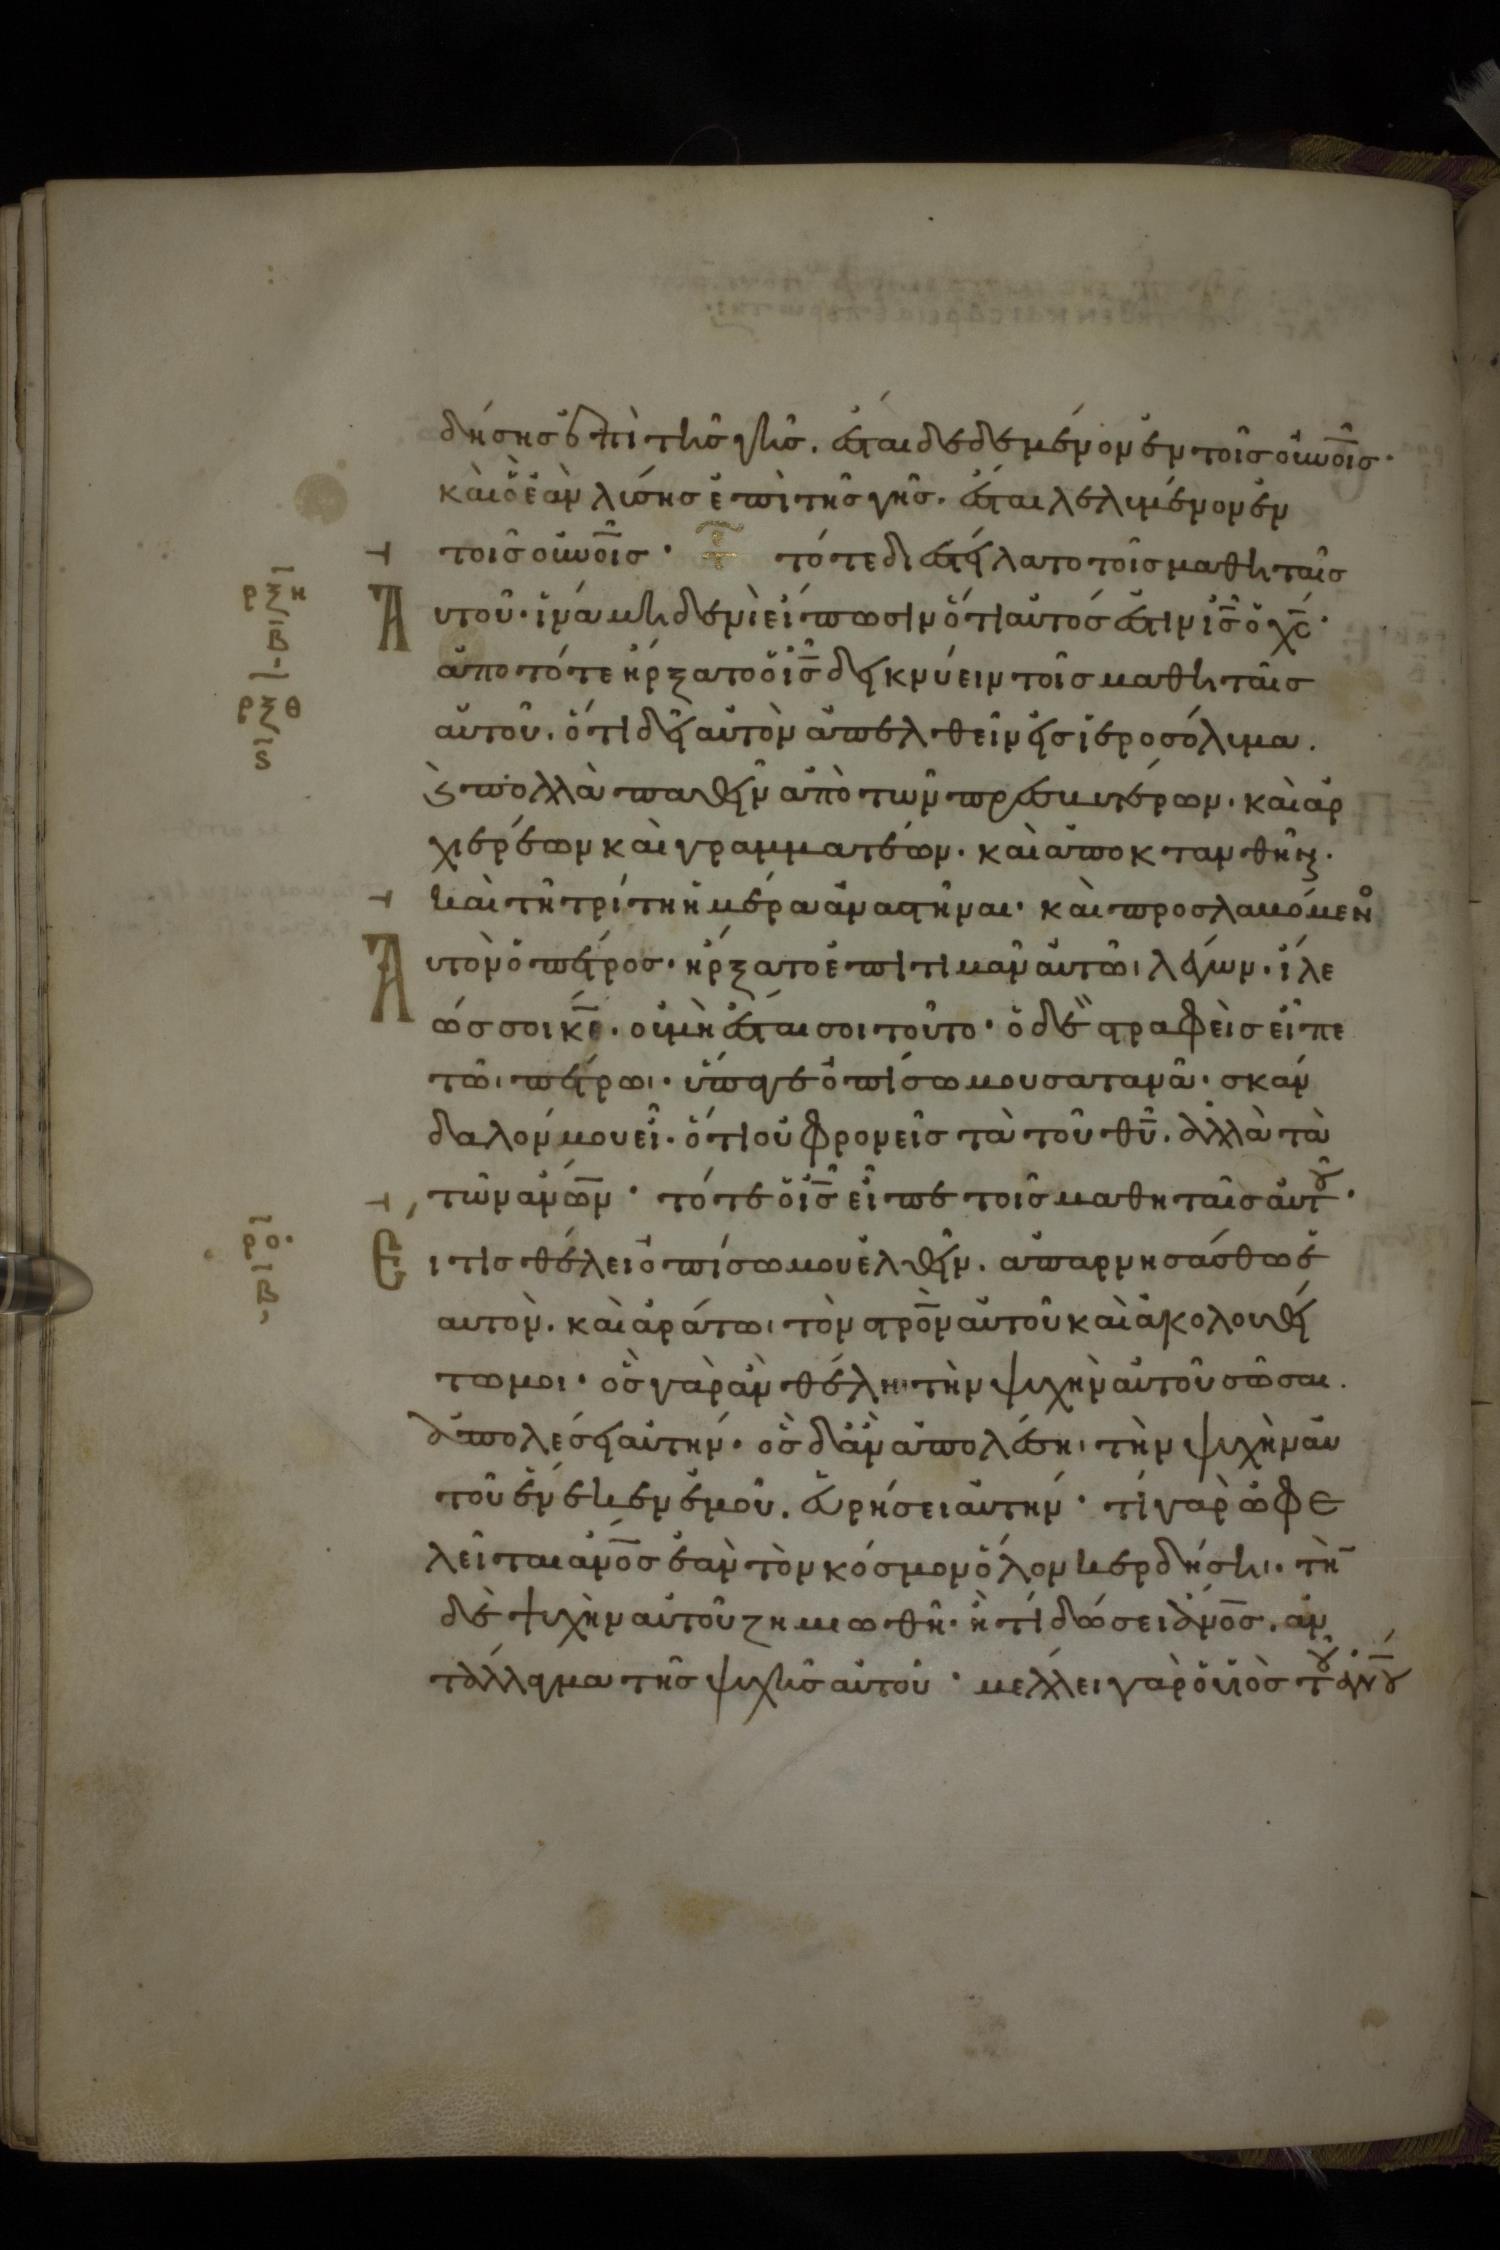 δήσησ ἐπὶ τῆσ γῆσ. ἔσται δεδεμένον ἐν τοῖσ οὐνοῖσ·
καὶ ὃ ἐὰν λύσησ ἐπὶ τῆσ γῆσ. ἔσται λελυμένον ἐν
τοῖσ οὐνοῖσ· τότε διεστείλατο τοῖσ μαθηταῖσ
ρξη
β
Αυτοῦ· ἵνα μηδενὶ εἴπωσιν ὅτι αὐτόσ ἐστιν ισ ὁ χσ·
ἀπο τότε ἤρξατο ὁ ισ δεικνύειν τοῖσ μαθηταῖσ
ρξθ
ς
αὐτοῦ. ὅτι δεῖ αὐτὸν ἀπελθεῖν εἰσ ἱεροσόλυμα.
ϗ πολλὰ παθεῖν ἀπὸ τῶν πρεσβυτέρων. καὶ ἀρ
χιερέων καὶ γραμματέων. καὶ ἀποκτανθῆναι.
καὶ τῆ τρίτη ἡμέρα ἀναστῆναι. καὶ προσλαβόμενο
Αυτὸν ὁ πέτροσ. ἤρξατο ἐπιτιμᾶν αὐτῶι λέγων. ἵλε
ώσ σοι κε. οὐ μὴ ἔσται σοι τοῦτο· ὁ δὲ στραφεὶσ εἶπε
τῶι πέτρωι. ὕπαγε ὀπίσω μου σατανᾶ. σκάν
δαλόν μου εἶ. ὅτι οὐ φρονεῖσ τὰ τοῦ θυ. ἀλλὰ τὰ
τῶν ανων· τότε ὁ ισ εἶπε τοῖσ μαθηταῖσ αὐτοῦ·
ρο
β
Ει τισ θέλει ὀπίσω μου ἐλθεῖν. ἀπαρνησάσθω ἑ
αυτὸν. καὶ ἀράτωι τὸν στρον αὐτοῦ καὶ ἀκολουθεί
τω μοι· ὃσ γὰρ ἂν θέλη τὴν ψυχὴν αὐτοῦ σῶσαι.
ἀπολέσει αὐτήν. ὃσ δ' ἂν ἀπολέσηι τὴν ψυχὴν αὐ
τοῦ ἕνεκεν ἐμοῦ. εὑρήσει αὐτήν· τί γὰρ ὠφε
λεῖται ανοσ ἐὰν τὸν κόσμον ὅλον κερδήσηι. τὴν
δὲ ψυχὴν αὐτοῦ ζημιωθῆ. ἢ τί δώσει ανοσ. ἀν
τάλλαγμα τῆσ ψυχῆσ αὐτοῦ· μέλλει γὰρ ὁ υἱὸσ τοῦ ανου